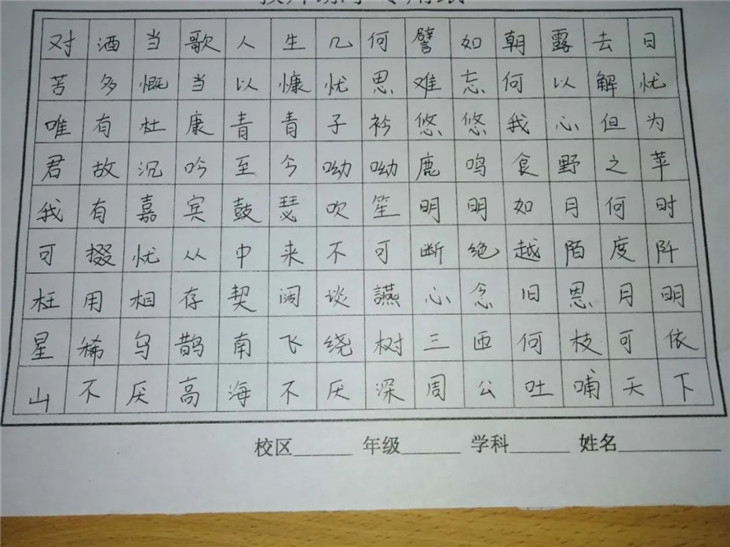 对酒当歌人生几何譬如朝露去日
苦多慨当以慷忧思难忘何以解忧
唯有杜康青青子衿悠悠我心但为
君故沉吟至今呦呦鹿鸣食野之苹
我有嘉宾鼓瑟吹笙明明如月何时
可掇忧从中来不可断绝越陌度阡
枉用相存契阔谈讌心念旧恩月明
星稀乌鹊南飞绕树三匝何枝可依
山不厌高海不厌深周公吐哺天下
校区______ 年级______ 学科______ 姓名__________